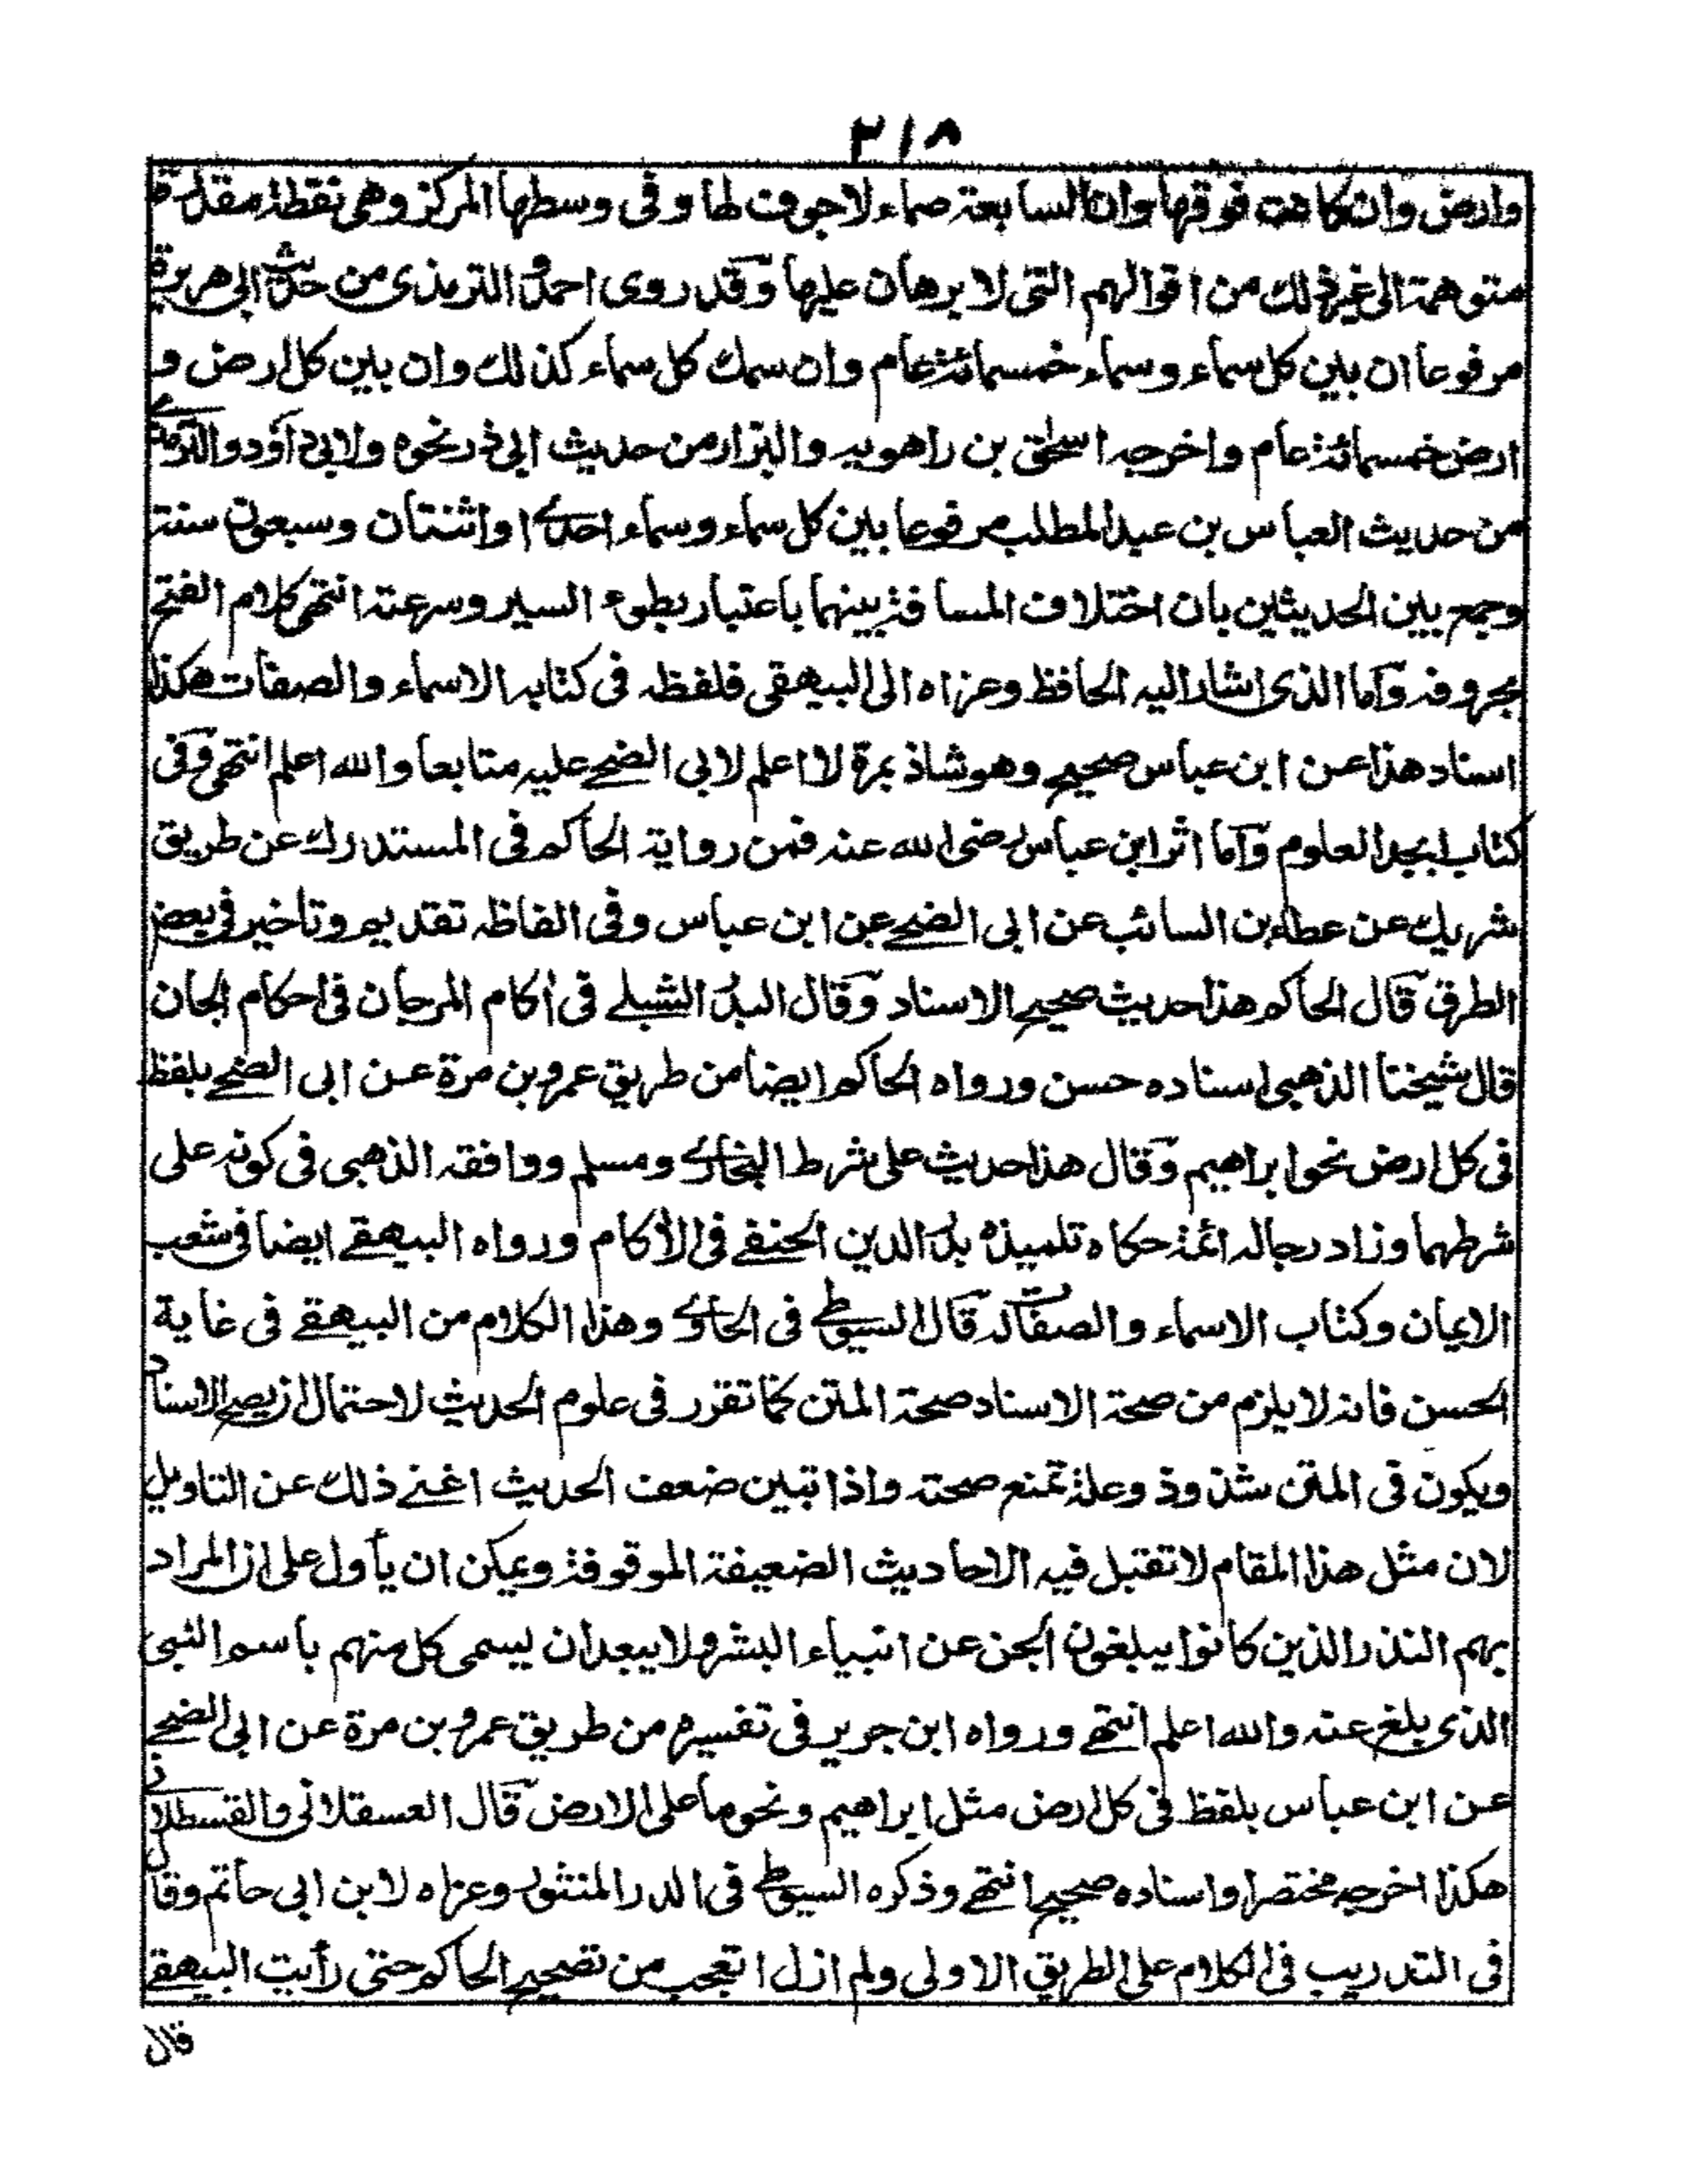 ٢١٨
وارض وان كانت فوقها وان السابعة صماء لا جوف لها وفى وسطها المركز وهى نقطة مقدرة
متوهمة الى غير ذلك من اقوالهم التى لا برهان عليها وقد روى احمد والترمذى من حديث ابى هريرة
مرفوعا ان بين كل سماء وسماء خمسمائة عام وان سمك كل سماء كذلك وان بين كل ارض و
ارض خمسمائة عام واخرجه اسحٰق بن راهويه والبزار من حديث ابى ذر نحوه ولابى داؤد والترمذے
من حديث العباس بن عبد المطلب مرفوعا بين كل سماء وسماء احدے او اثنتان وسبعون سنة
وجمع بين الحديثين بان اختلاف المسافة بينهما باعتبار بطوء السير وسرعته انتهى كلام الفتح
بحروفه واما الذى اشار اليه الحافظ وعزاه الى البيهقى فلفظه فى كتابه الاسماء والصفات هكذا
اسناد هذا عن ابن عباس صحيح وهو شاذ بمرة لا اعلم لابى الضحے عليه متابعا والله اعلم انتهى وفى
كتاب ابجد العلوم واما اثر ابن عباس رضى الله عنه فمن رواية الحاكم فى المستدرك عن طريق
شريك عن عطاء بن السائب عن ابى الضحے عن ابن عباس وفى الفاظه تقديم وتاخير فى بعض
الطرق قال الحاكم هذا حديث صحيح الاسناد وقال البدر الشبلے فى أكام المرجان فى احكام الجان
قال شيخنا الذهبى اسناده حسن ورواه الحاكم ايضا من طريق عمرو بن مرة عن ابى الضحے بلفظ
فى كل ارض نحو ابراهيم وقال هذا حديث على شرط البخارے ومسلم ووافقه الذهبى فى كونه على
شرطهما وزاد رجاله ائمة حكاه تلميذه بدر الدين الحنفے فى الأكام ورواه البيهقے ايضا فى شعب
الايمان وكتاب الاسماء والصفات له قال السيوطے فى الحاوے وهذا الكلام من البيهقے فى غاية
الحسن فانه لا يلزم من صحة الاسناد صحة المتن كما تقرر فى علوم الحديث لاحتمال ان يصح الاسناد
ويكون فى المتن شذوذ وعلة تمنع صحته واذا تبين ضعف الحديث اغنے ذلك عن التاويل
لان مثل هذا المقام لا تقبل فيه الاحاديث الضعيفة الموقوفة ويمكن ان يأول على ان المراد
بهم النذر الذين كانوا يبلغون الجن عن انبياء البشر ولا يبعد ان يسمى كل منهم باسم النبى
الذى بلغ عنه والله اعلم انتهے ورواه ابن جرير فى تفسيره من طريق عمرو بن مرة عن ابى الضحے
عن ابن عباس بلفظ فى كل ارض مثل ابراهيم ونحو ما على الارض قال العسقلانى والقسطلانے
هكذا اخرجه مختصرا واسناده صحيح انتهے وذكره السيوطے فى الدر المنثور وعزاه لابن ابى حاتم وقال
فى التدريب فى الكلام على الطريق الاولى ولم ازل اتعجب من تصحيح الحاكم حتى رأيت البيهقے
قال